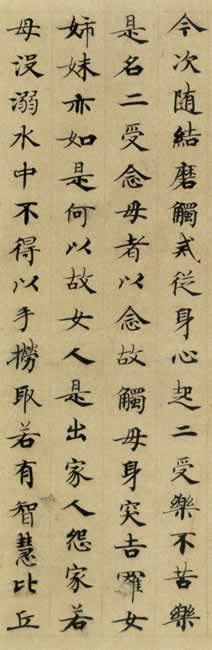 今次随結磨觸戒從身心起二受樂不苦樂
是名二受念母者以念故觸母身突吉羅女
姉妹亦如是何以故女人是出家人怨家若
母没溺水中不得以手撈取若有智慧比丘